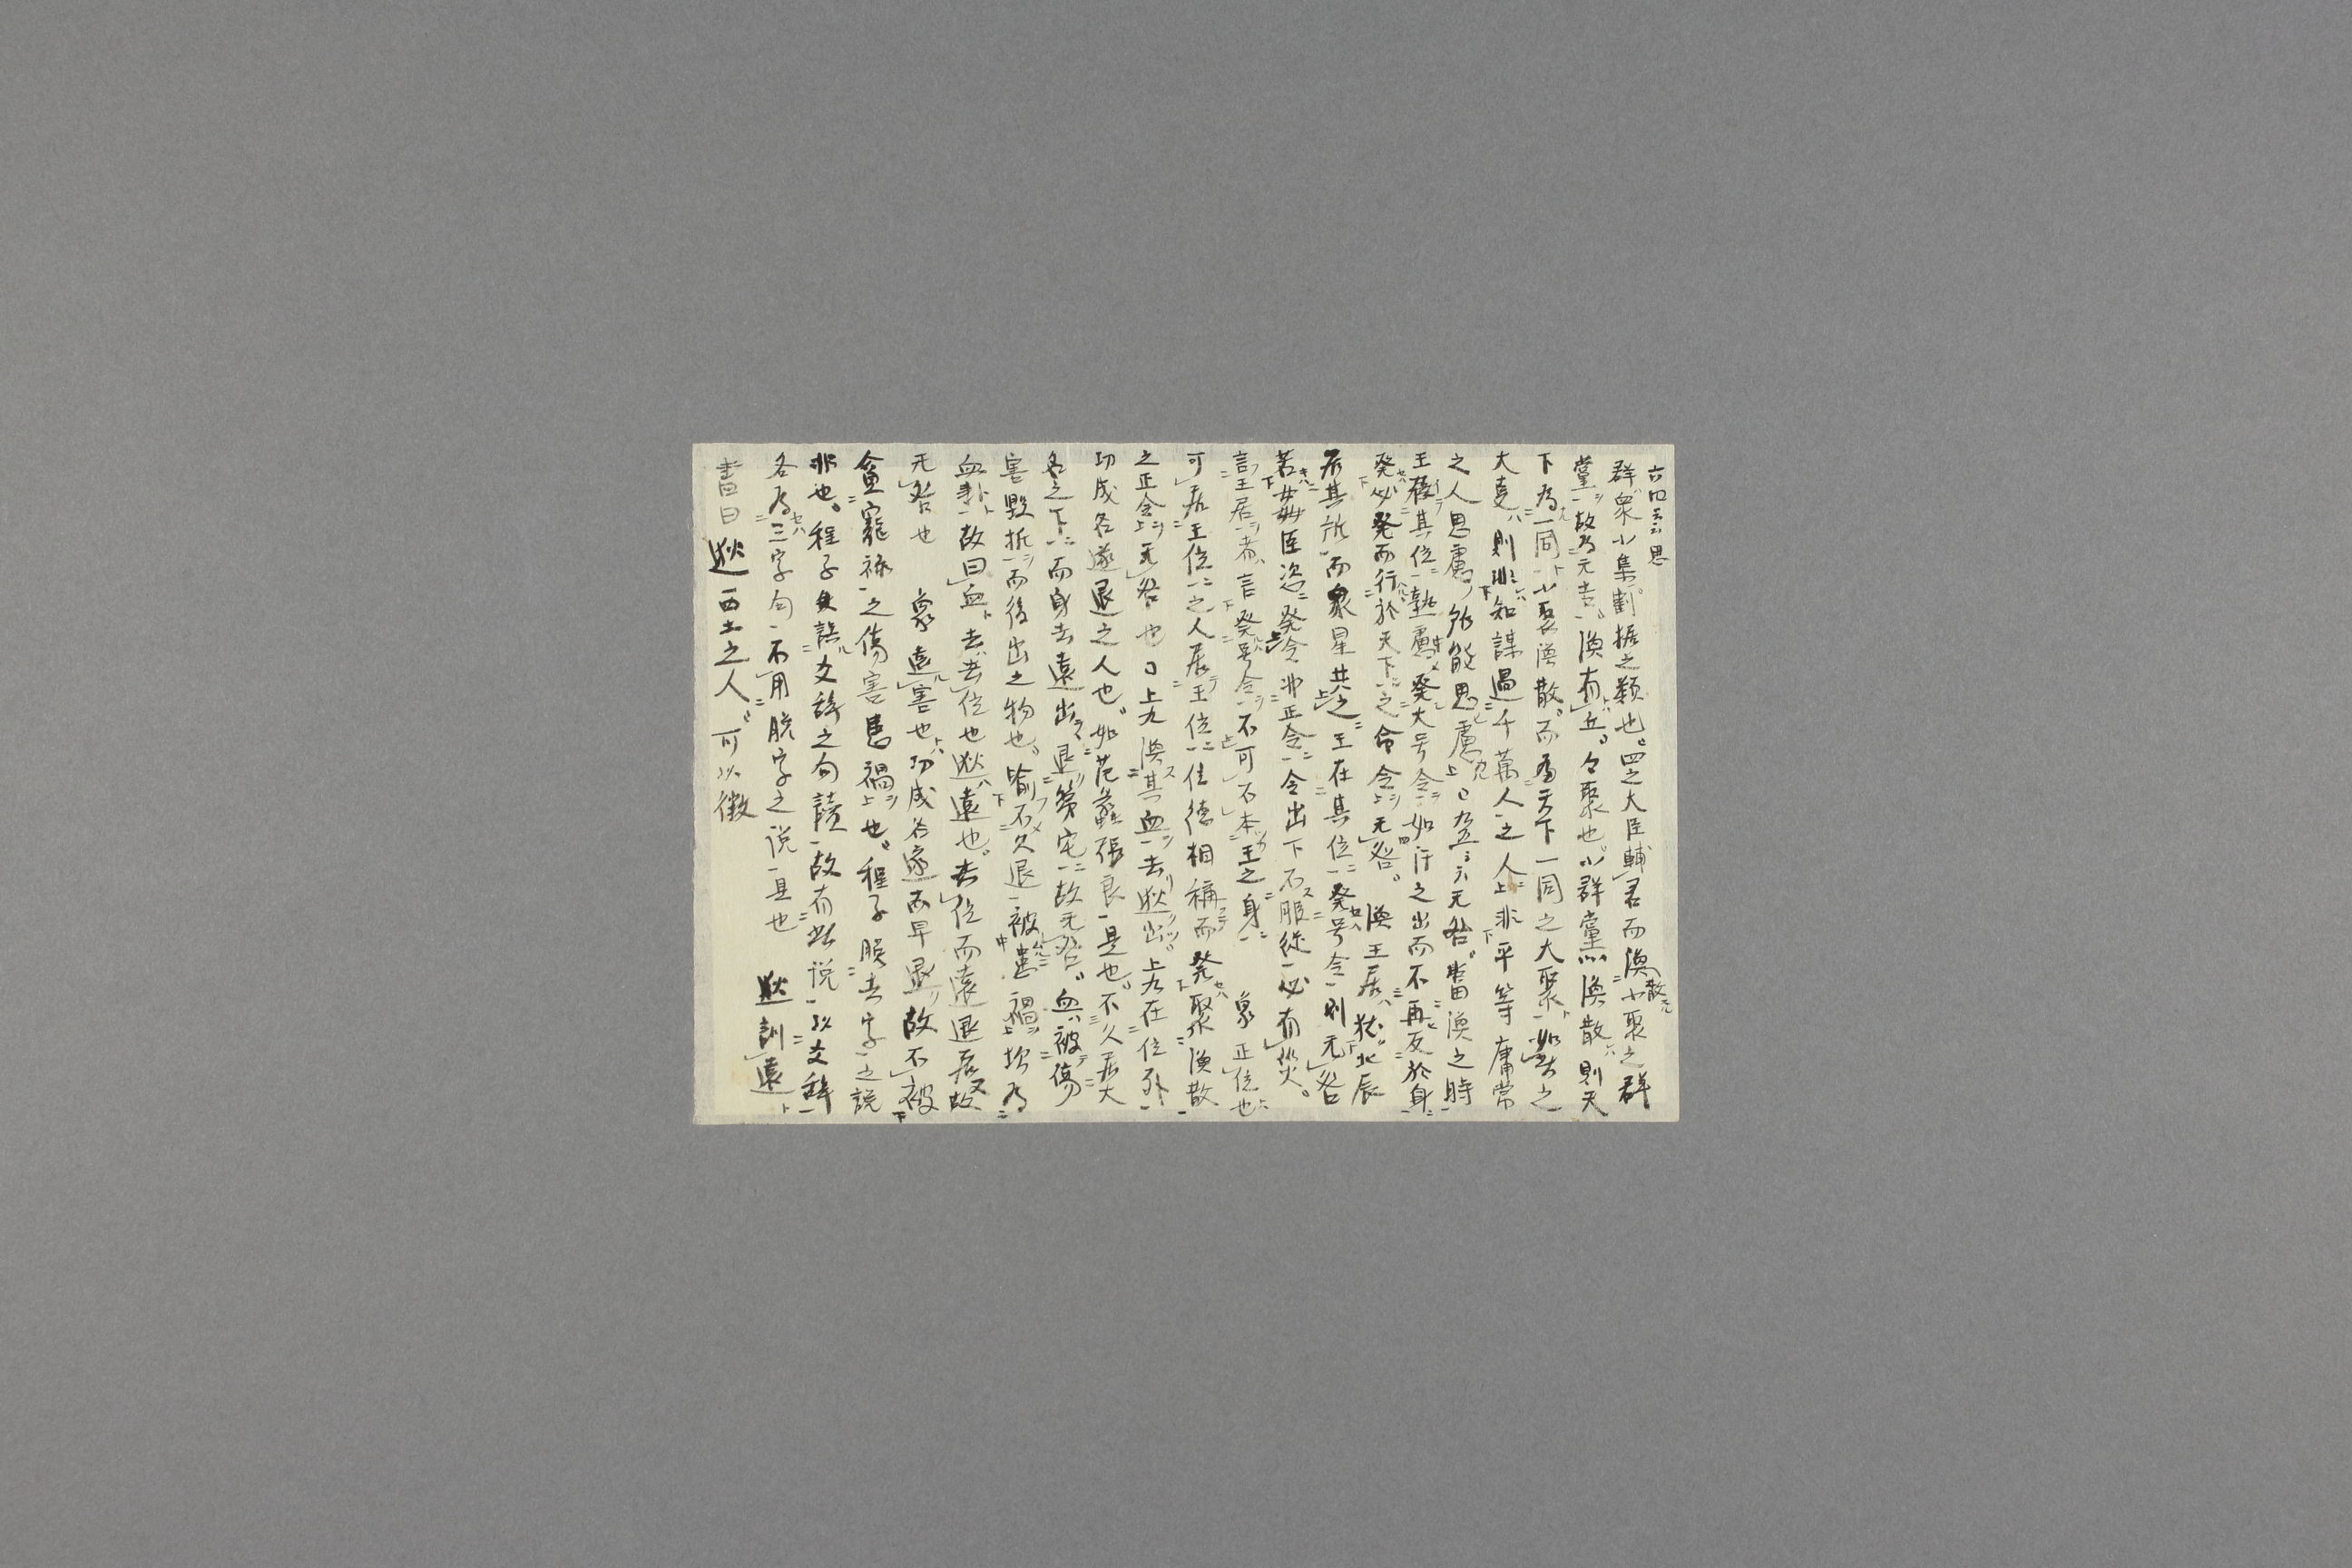 六四云云思
群衆小集割據之類也四之大臣輔君而渙散小聚之群
黨故為元吉渙有丘々聚也小群黨渙散則天
下為一同小聚渙散而為天下一同之大聚如此之
大変則非知謀過千萬人之人非平等庸常
之人思慮所能思慮○九五云云无咎當渙之時
王在其位熟慮発大号令如汗之出而不再反於身
発必発而行於天下之命令无咎渙王居猶北辰
居其所而衆星共之王在其位発号令則无咎
若姦臣恣発令非正令令出下不服従必有災
言王居者言発号令不可不本王之身 象正位也
可居王位之人居王位位德相稱而発聚渙散
之正令无咎也○上九渙其血去逖出上九在位外
功成名遂退之人也如范蠡張良是也不久居大
名之下而身去遠出退第宅故无咎血被傷
害毀折而後出之物也喻不久退被害禍坎為
血卦故曰血去去位也逖遠也去位而遠退居故
无咎也 象遠害也功成名遂而早退故不被
貪寵禄之傷害禍也程子脱去字之説
非也程子誤文辞之句讀故有此説以文辞
各為三字句不用脱字之説是也 逖訓遠
書曰逖西土之人可以徴